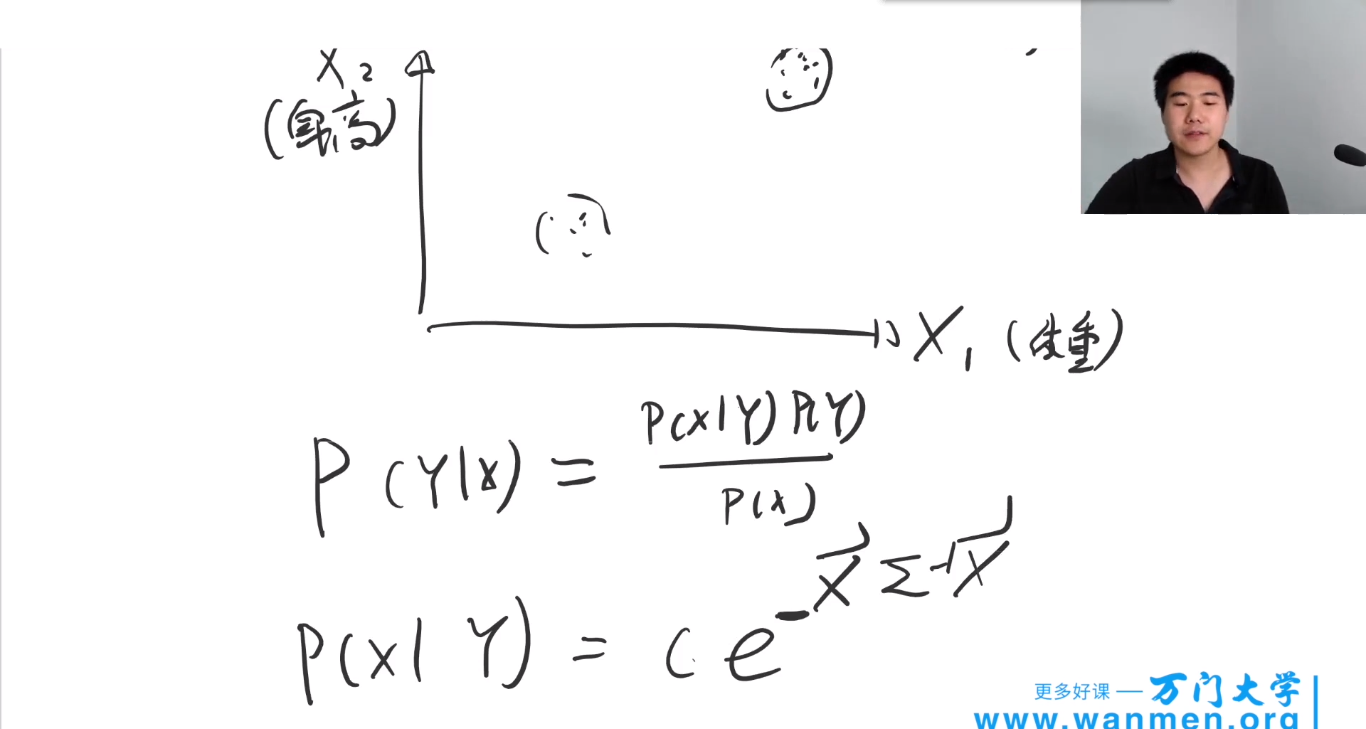 X₂
(身高)
X₁ (体重)
P(Y|X) = P(X|Y)P(Y) / P(X)
P(X|Y) = c e^{-\vec{X} Σ^{-1} \vec{X}}
更多好课 — 万门大学
www.wanmen.org